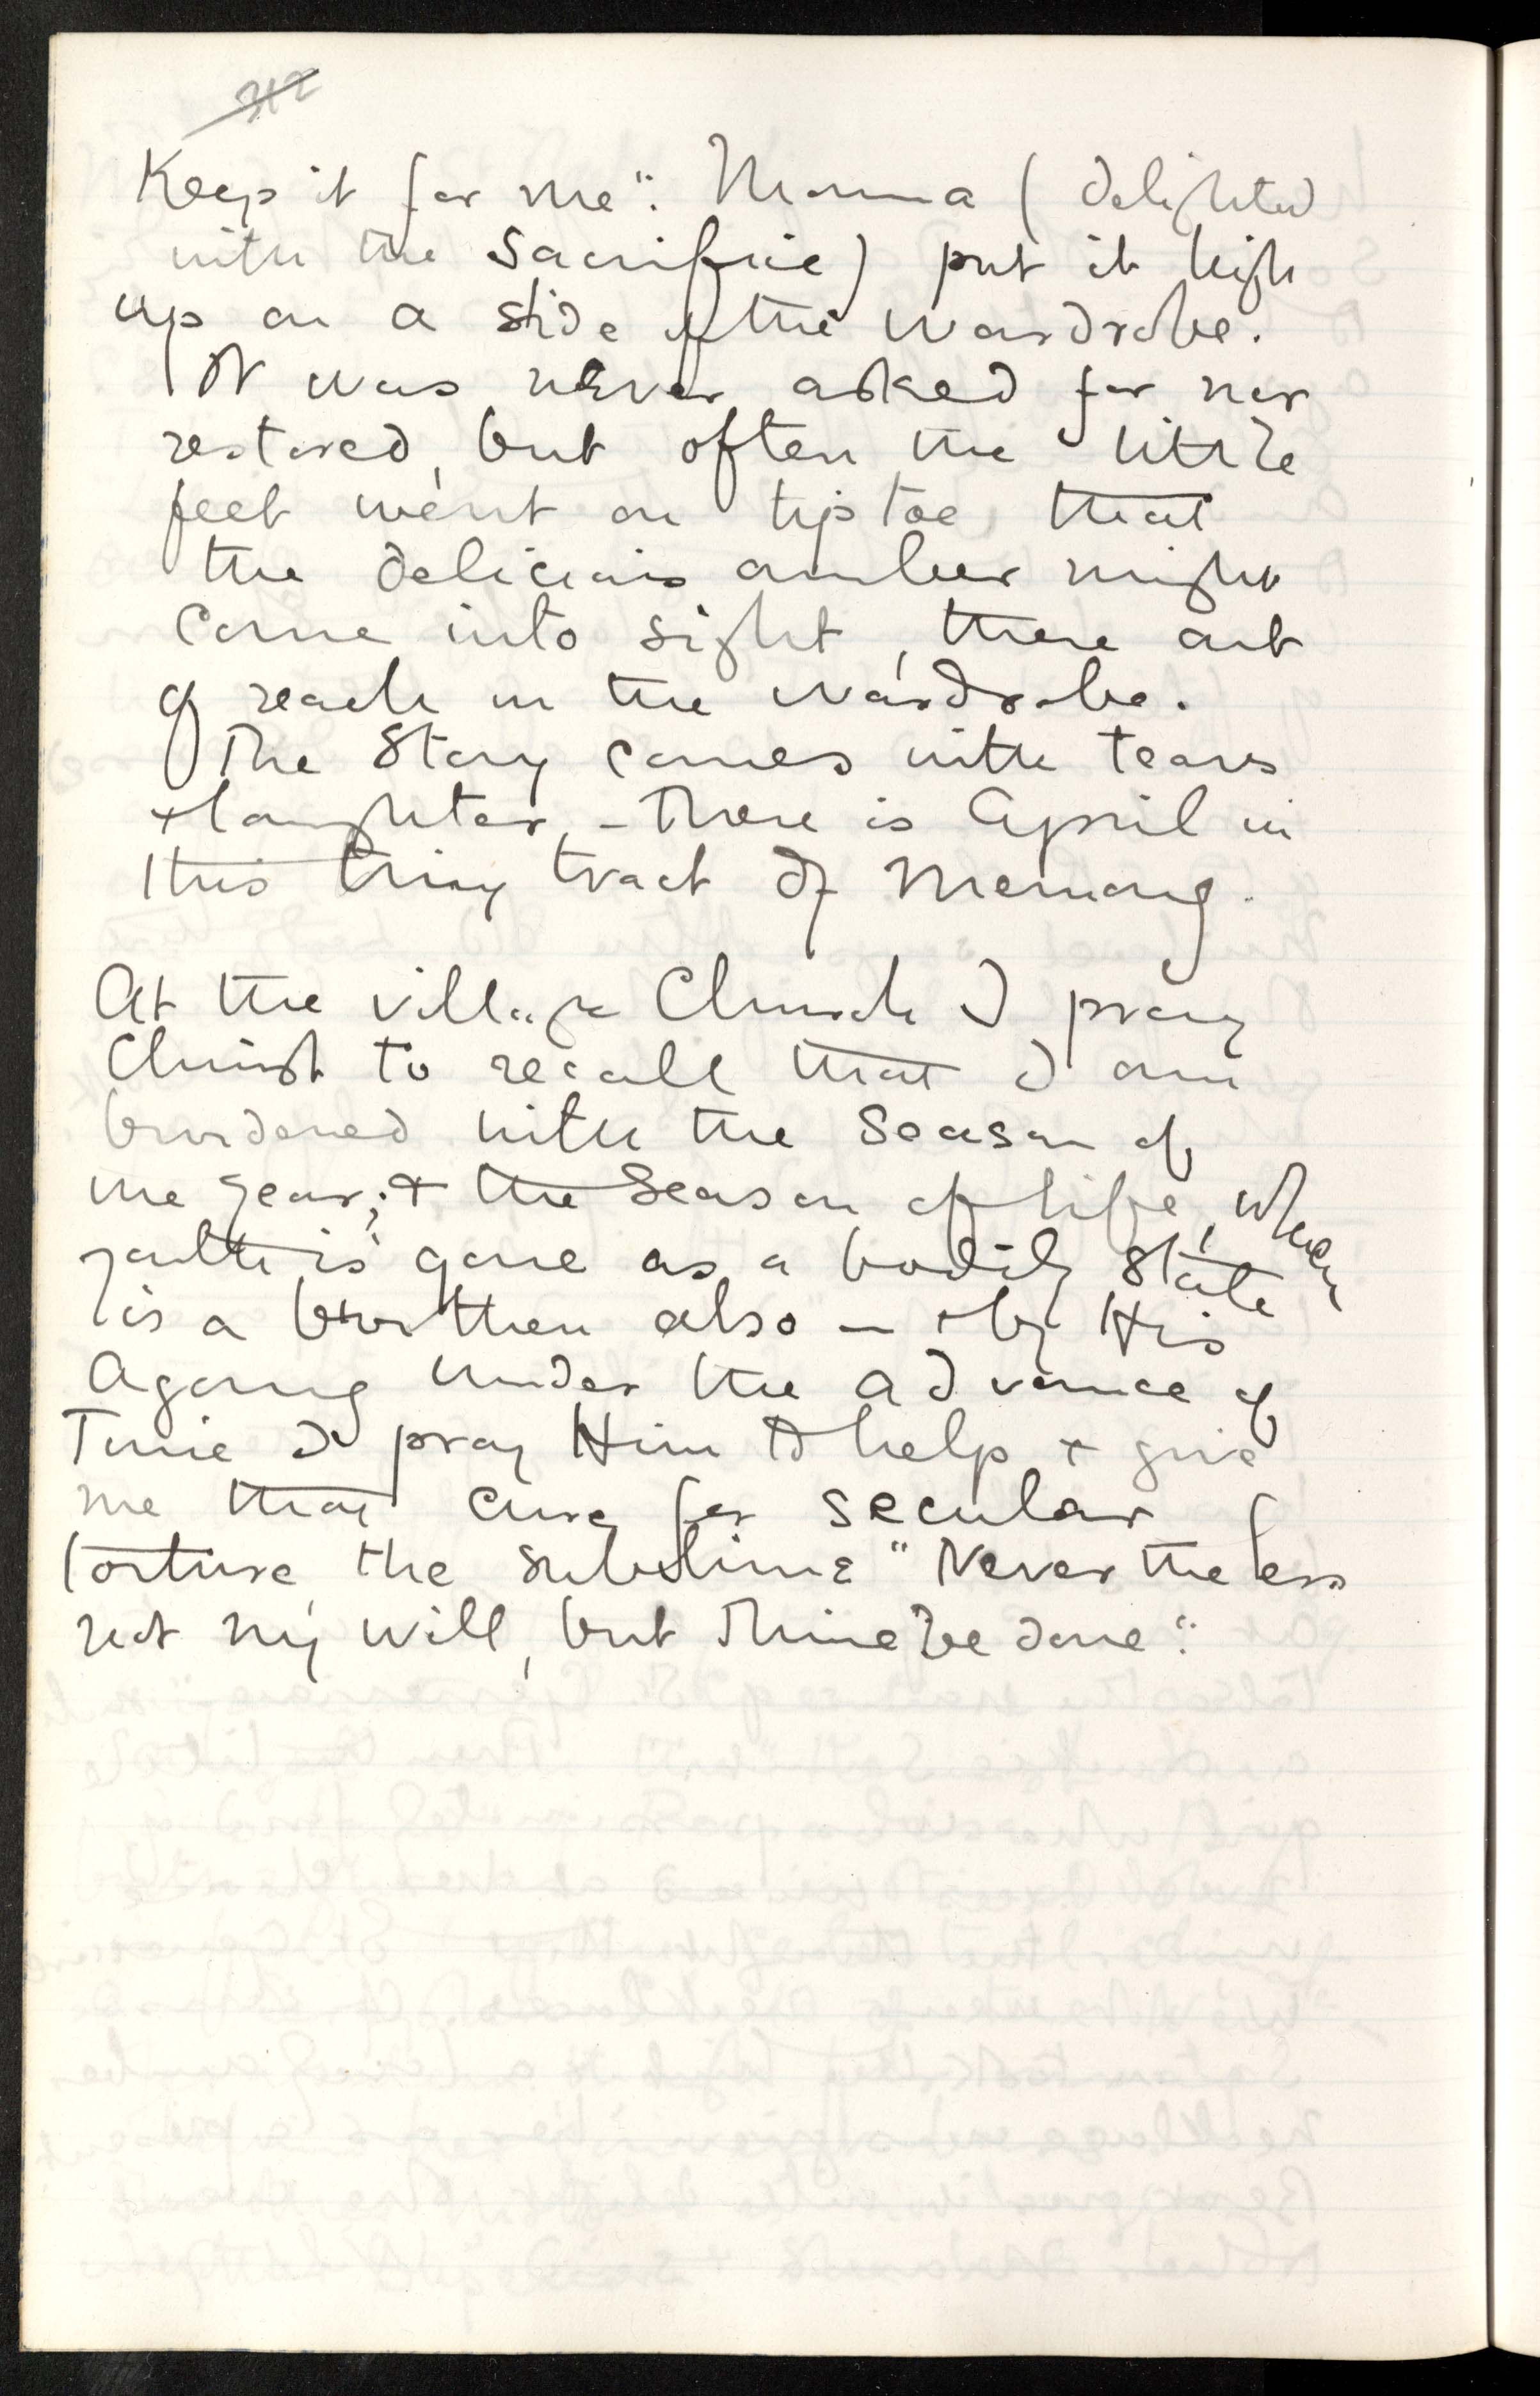 Keep it for me". Mamma (delighted
with the sacrifice) put it high
up on a slide of the wardrobe.
It was never asked for nor
restored, but often the little
feet went on tip toe, that
the delicious amber might
come into sight, there out
of reach in the wardrobe.
The story comes with tears
+ laughter, - there is April in
this tiny tract of Memory.
At the village Church I pray
Christ to recall that I am
burdened with the season of
the year; + the season of life, when
youth is gone as a bodily state
is a burthen also — + by His
Agony under the advance of
Time I pray Him to help + give
me that cure for secular
torture the sublime "Nevertheless
not my will, but Thine be done".